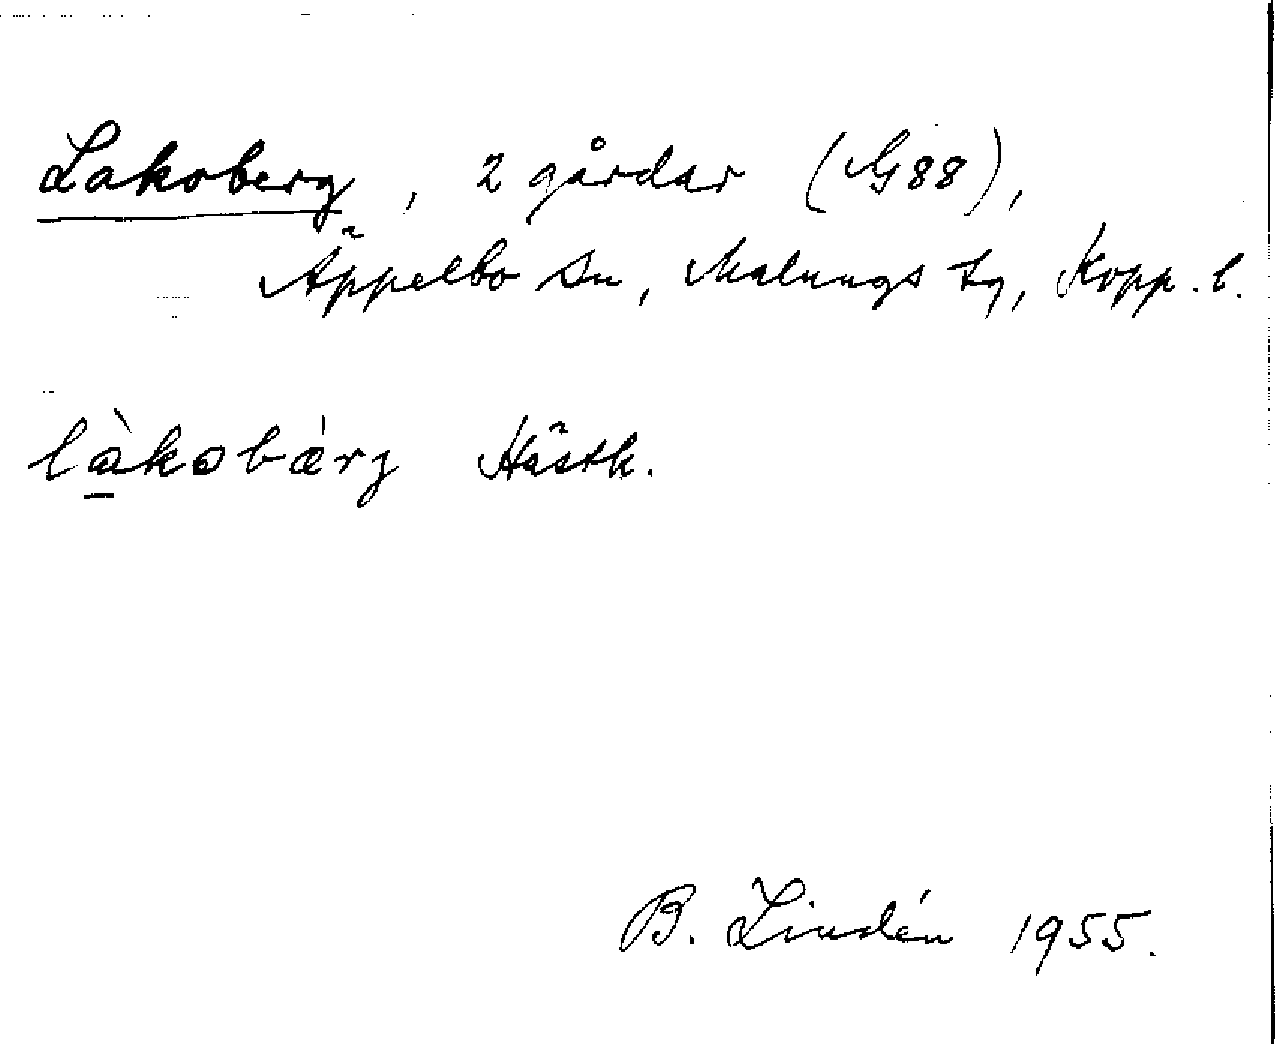 Lakoberg, 2 gårdar (G88),
Äppelbo sn, Malungs tg, Kopp. l.
là̠kobárg Hästk.
B. Lindén 1955.